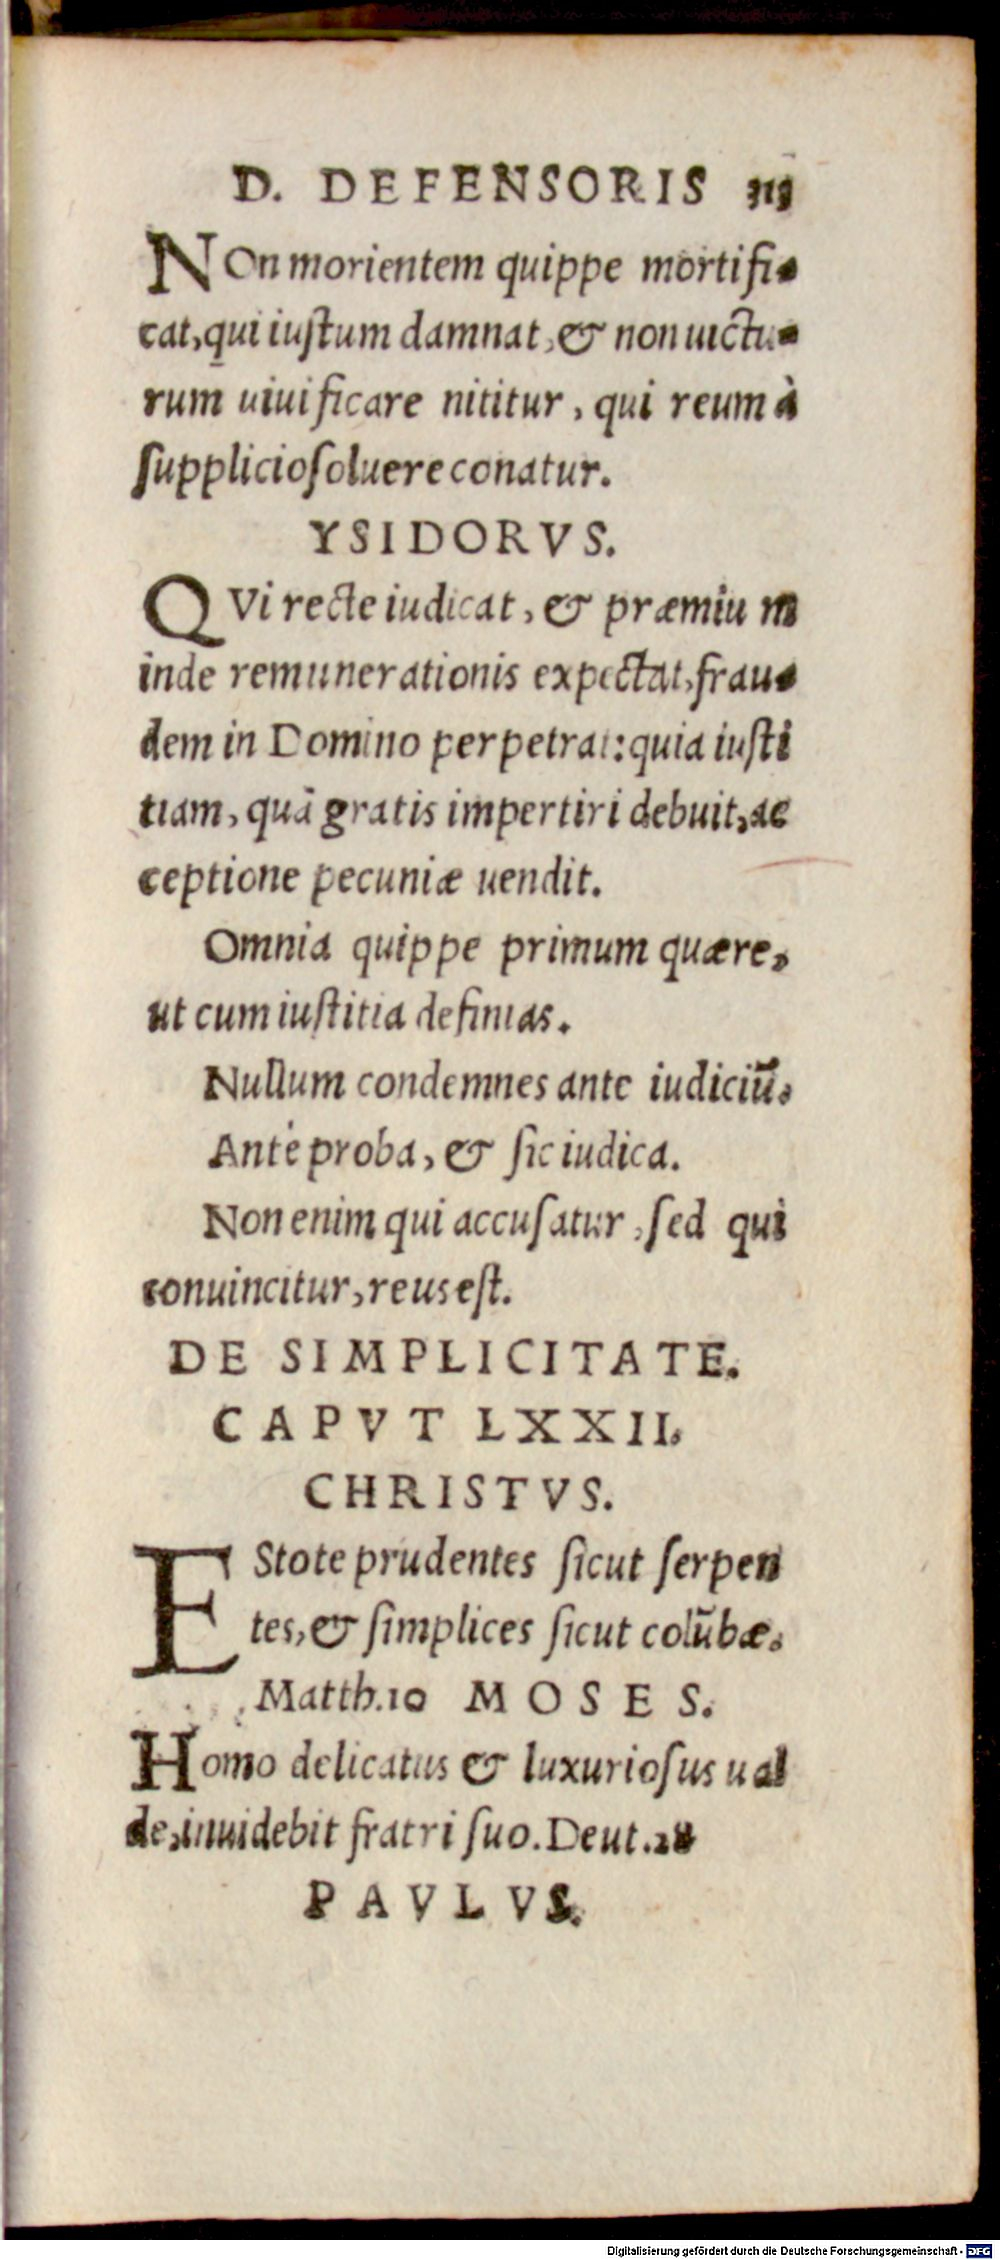 D. DEFENSORIS 313
NOn morientem quippe mortifi-
cat, qui iustum damnat, & non uictu-
rum uiuificare nititur, qui reum à
supplicio soluere conatur.
YSIDORVS.
QVi recte iudicat, & præmiu m
inde remunerationis expectat, frau-
dem in Domino perpetrat: quia iusti
tiam, quā gratis impertiri debuit, ac
ceptione pecuniæ uendit.
Omnia quippe primum quære,
ut cum iustitia definias.
Nullum condemnes ante iudiciū.
Ante proba, & sic iudica.
Non enim qui accusatur, sed qui
conuincitur, reus est.
DE SIMPLICITATE.
CAPVT LXXII.
CHRISTVS.
EStote prudentes sicut serpen
tes, & simplices sicut colūbæ.
Matth.10 MOSES.
Homo delicatus & luxuriosus ual
de, inuidebit fratri suo. Deut.28
PAVLVS.
Digitalisierung gefördert durch die Deutsche Forschungsgemeinschaft - DFG